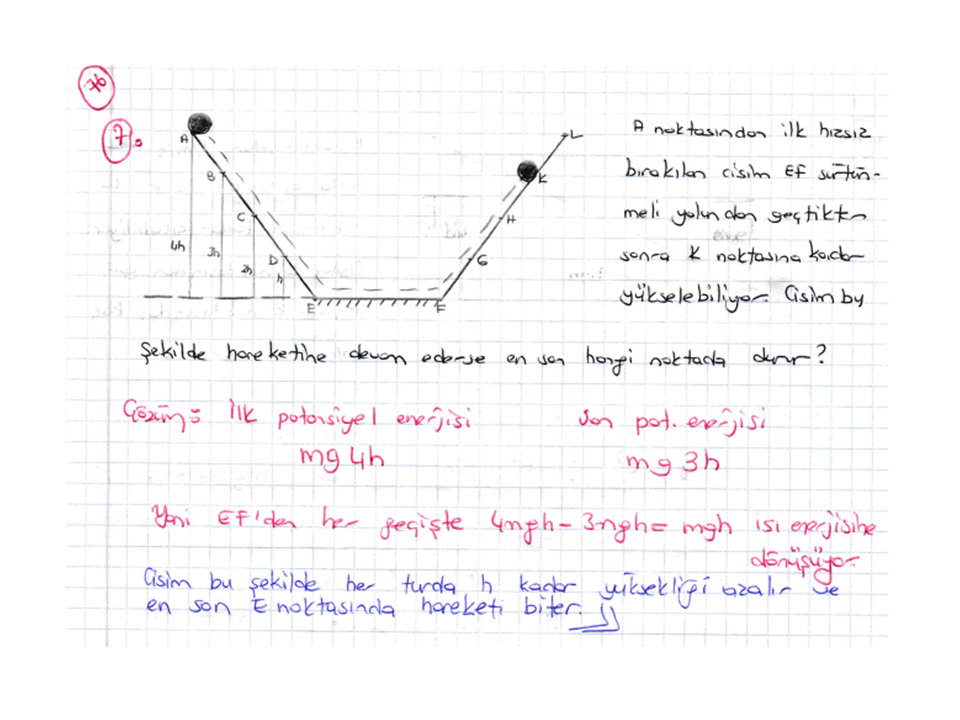 76
7.
A noktasından ilk hızsız
bırakılan cisim EF sürtün-
meli yolundan geçtikten
sonra K noktasına kadar
yükselebiliyor. Cisim bu
şekilde hareketine devam ederse en son hangi noktada durur?
A
B
C
D
E
F
G
H
K
L
4h
3h
2h
h
Çözüm: İlk potansiyel enerjisi
Son pot. enerjisi
mg 4h
mg 3h
Yani EF'den her geçişte 4mgh - 3mgh = mgh ısı enerjisine
dönüşüyor.
Cisim bu şekilde her turda h kadar yüksekliği azalır ve
en son E noktasında hareketi biter.